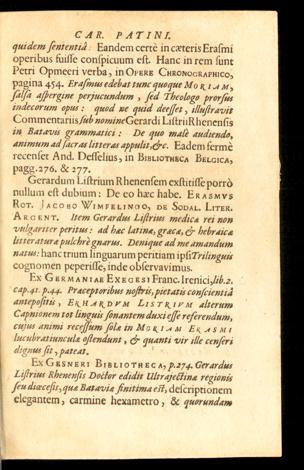 CAR. PATINI.
quidem sententiâ: Eandem certè in cæteris Erasmi
operibus fuisse conspicuum est. Hanc in rem sunt
Petri Opmeeri verba, in OPERE CHRONOGRAPHICO,
pagina 454. Erasmus edebat tunc quoque MORIAM,
salsa aspergine perjucundum, sed Theologo prorsus
indecorum opus: quod ne quid deesset, illustravit
Commentariis, sub nomine Gerardi Listrii Rhenensis
in Batavis grammatici: De quo malè audiendo,
animum ad sacras litteras appulit, &c. Eadem fermè
recenset And. Desselius, in BIBLIOTHECA BELGICA,
pagg. 276. & 277.
Gerardum Listrium Rhenensem exstitisse porrò
nullum est dubium: De eo hæc habe. ERASMUS
ROT. JACOBO WIMFELINGO, DE SODAL. LITER.
ARGENT. Item Gerardus Listrius medicæ rei non
vulgariter peritus: ad hæc latinæ, græcæ, & hebraicæ
litteraturæ pulchrè gnarus. Denique ad me amandum
natus: hanc trium linguarum peritiam ipsi Trilinguis
cognomen peperisse, inde observavimus.
Ex GERMANIAE EXEGESI Franc. Irenici, lib. 2.
cap. 41. p. 44. Præceptoribus nostris, pietatis conscientiâ
antepositis, ERHARDUM LISTRIUM alterum
Capnionem tot linguis sonantem duxi esse referendum,
cujus animi recessum solæ in MORIAM ERASMI
lucubratiunculæ ostendunt, & quanti vir ille censeri
dignus sit, pateat.
Ex GESNERI BIBLIOTHECA, p. 274. Gerardus
Listrius Rhenensis Doctor edidit Ultrajectinæ regionis
seu diœcesis, quæ Bataviæ finitima est, descriptionem
elegantem, carmine hexametro, & quorundam